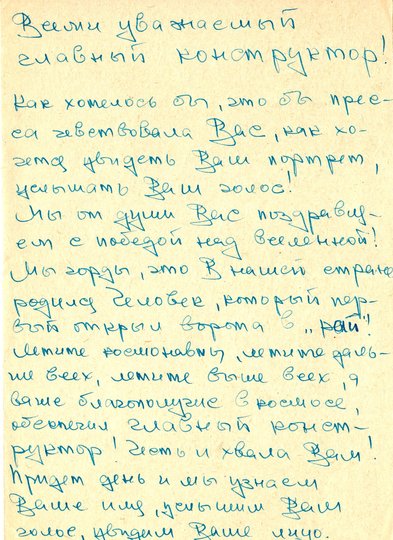 Всеми уважаемый
главный конструктор!
Как хотелось бы, что бы прес-
са чевствовала Вас, как хо-
чется увидеть Ваш портрет,
услышать Ваш голос!
Мы от души Вас поздравля-
ем с победой над вселенной!
Мы горды, что в нашей стране
родился Человек, который пер-
вый открыл ворота в „рай"!
Летите космонавты, летите даль-
ше всех, летите выше всех, а
ваше благополучие в космосе,
обеспечил главный конст-
руктор! Честь и хвала Вам!
Придет день и мы узнаем
Ваше имя, услышим Ваш
голос, увидим Ваше лицо.